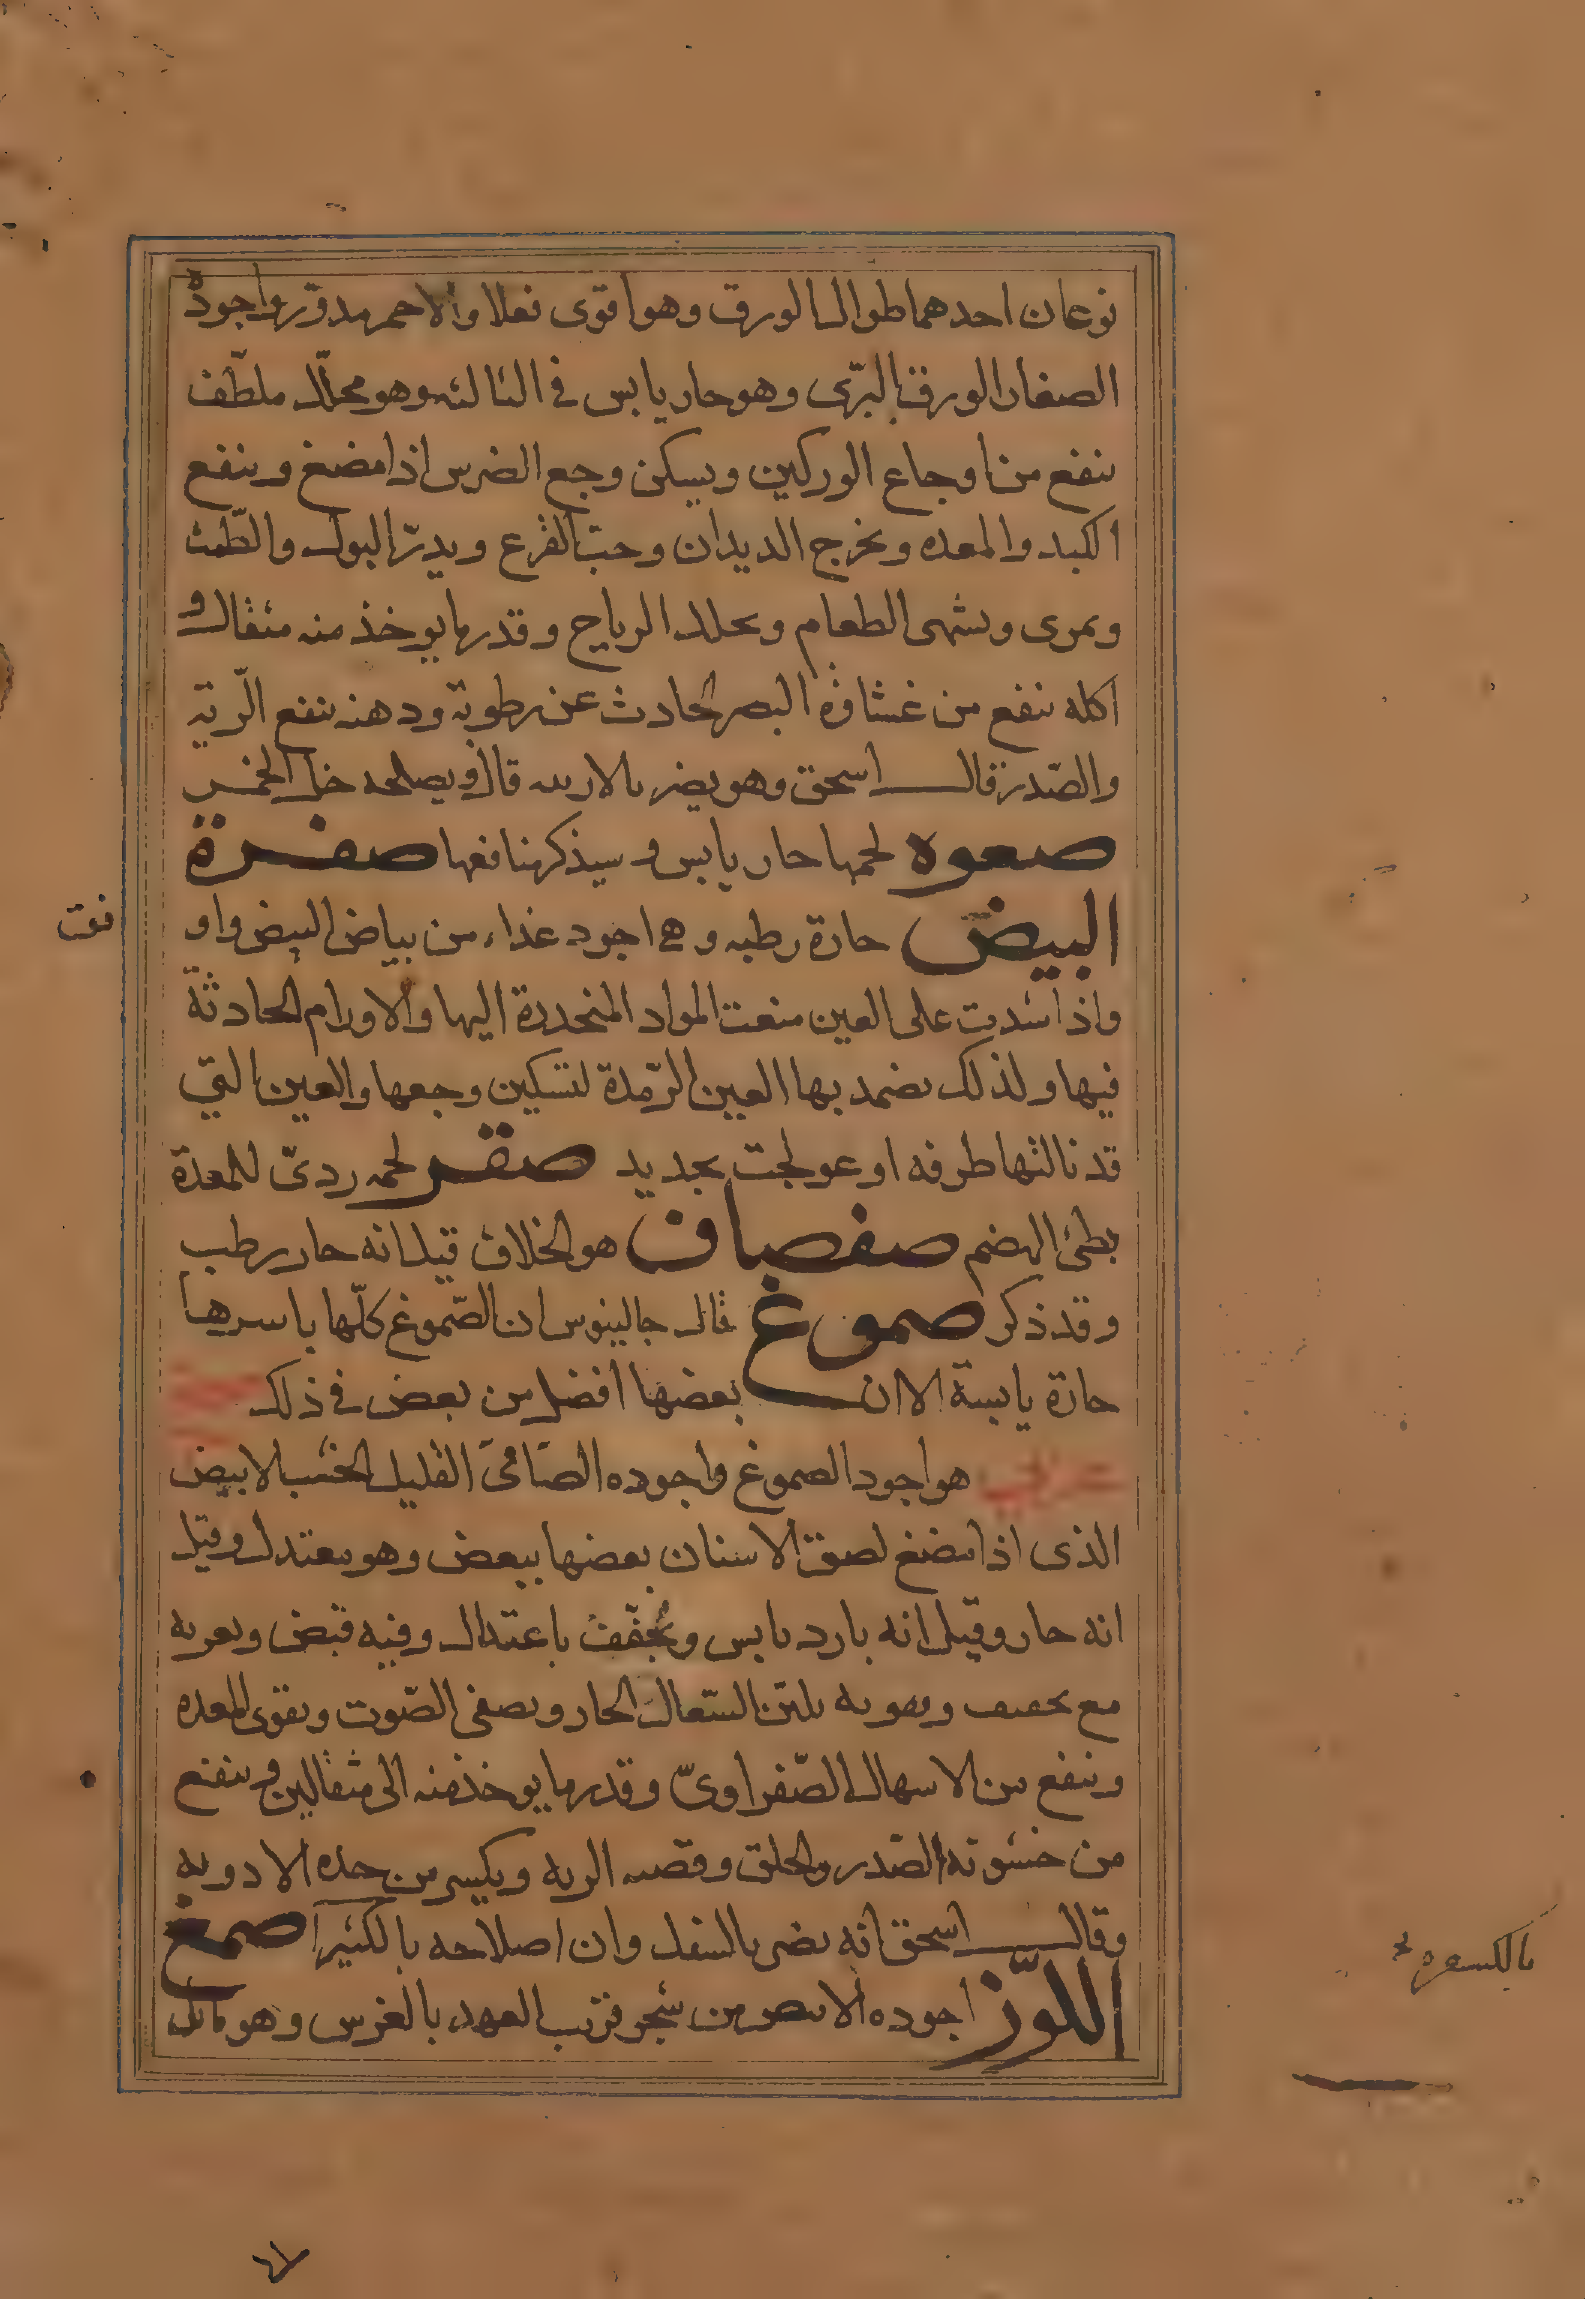 نوعان احدهما طوال الورق وهو اقوى فعلا والاحمر مدور واجوده
الصغار الورق البرى وهو حار يابس فى الثالثه وهو محلل ملطف
ينفع من اوجاع الوركين ويسكن وجع الضرس اذا مضغ وينفع
الكبد والمعده ويخرج الديدان وحب القرع ويدر البول والطمث
ويمرى ويشهى الطعام ويحلل الرياح وقدر ما يوخذ منه مثقال و
اكله ينفع من غشاوة البصر الحادث عن رطوبة ودهنه ينفع الرية
والصدر قال اسحق وهو يضر بالاربيه قال ويصلحه خل الخمر
صعوه لحمها حار يابس وسيذكر منافعها صفرة
البيض حارة رطبه وهى اجود غذاء من بياض البيض واو
نوت
واذا شدت على العين منعت المواد المنحدرة اليها والاورام الحادثة
فيها ولذلك يضمد بها العين الرمدة لتسكين وجعها والعين التى
قد نالتها طرفه او عولجت بحديد صقر لحمه ردى للمعدة
بطئ الهضم صفصاف هو الخلاف قيل انه حار رطب
وقد ذكر صموغ قال جالينوس ان الصموغ كلها باسرها
حارة يابسة الا ان بعضها افضل من بعض فى ذلك
هو اجود الصموغ واجوده الصافى القليل الخشب الابيض
الذى اذا مضغ لصق الاسنان بعضها ببعض وهو معتدل وقيل
انه حار وقيل انه بارد يابس ويجفف باعتدال وفيه قبض وتعريه
مع تجفيف وتقويه يلين السعال الحار ويصفى الصوت ويقوى المعده
وينفع من الاسهال الصفراوى وقدر ما يوخذ منه الى مثقالين وينفع
من خشونة الصدر والحلق وقصبه الريه ويكسر من حده الادويه
وقال اسحق انه يضر بالسفل وان اصلاحه بالكثيرا صمغ
اللوز اجوده الابيض من شجر قريب العهد بالغرس وهو مايل